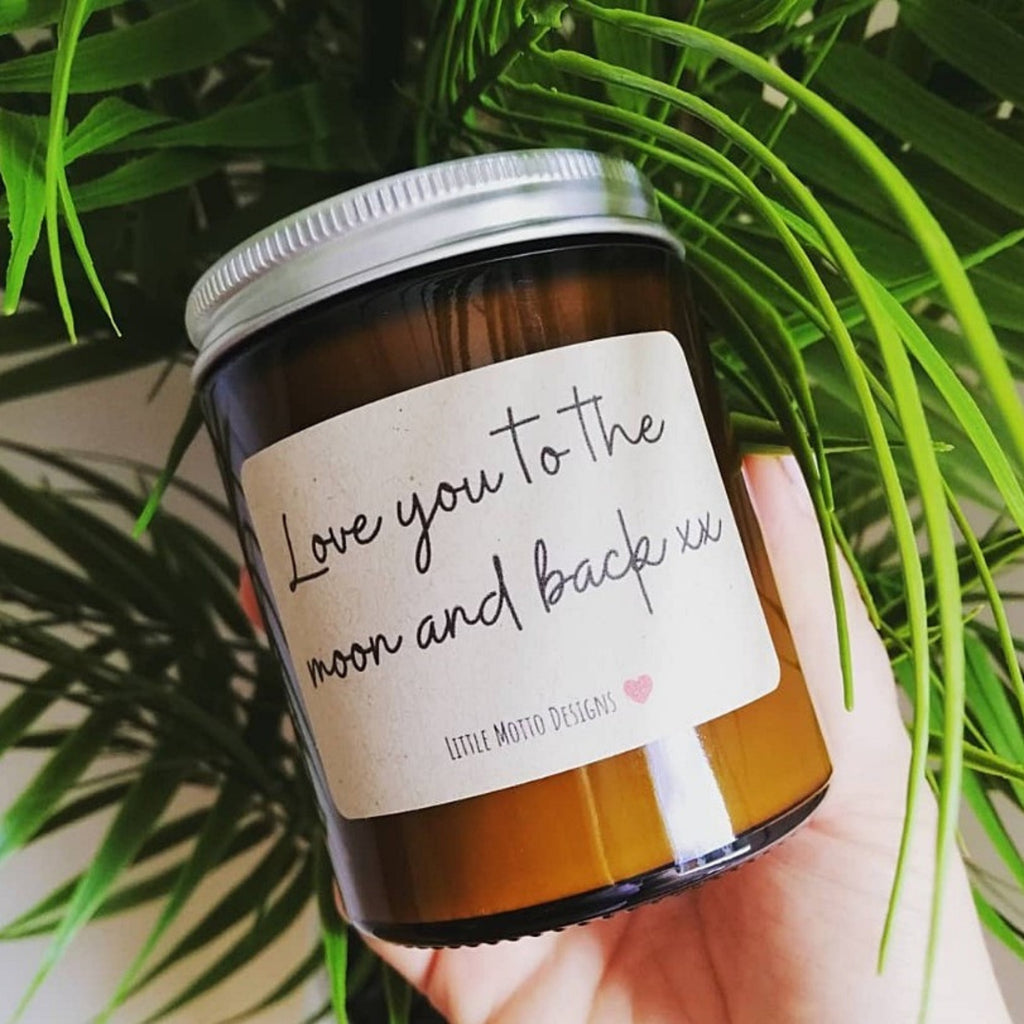 Love you to the
moon and back xx
LITTLE MOTTO DESIGNS